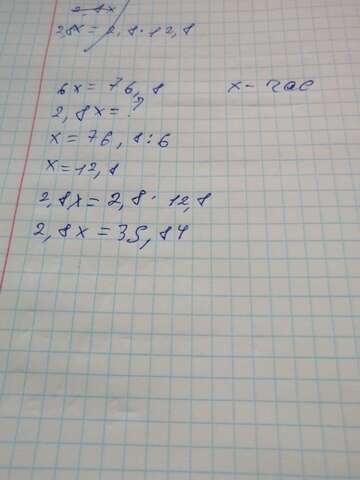 2,8x
2,8x = 2,8 · 12,8
6x = 76,8 x - час
2,8x = ?
x = 76,8 : 6
x = 12,8
2,8x = 2,8 · 12,8
2,8x = 35,84